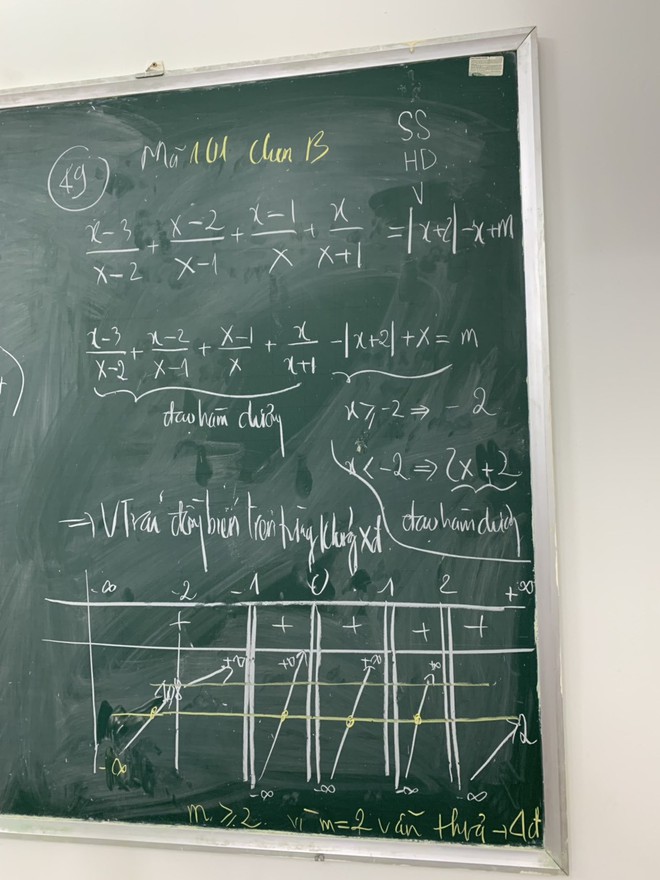 SS
HD
V
49 Mã 101 chọn B
x-3/x-2 + x-2/x-1 + x-1/x + x/x+1 = |x+2| - x + m
x-3/x-2 + x-2/x-1 + x-1/x + x/x+1 - |x+2| + x = m
đạo hàm dương
x ≥ -2 ⇒ -2
x < -2 ⇒ 2x + 2
đạo hàm dương
⇒ VTrái đồng biến trên từng khoảng xđ
-∞ -2 -1 0 1 2 +∞
+ + + + +
+∞ +∞ +∞ +∞
2
-∞ -∞ -∞ -∞ -∞
m ≥ 2 vì m = 2 vẫn thoả → 4đ